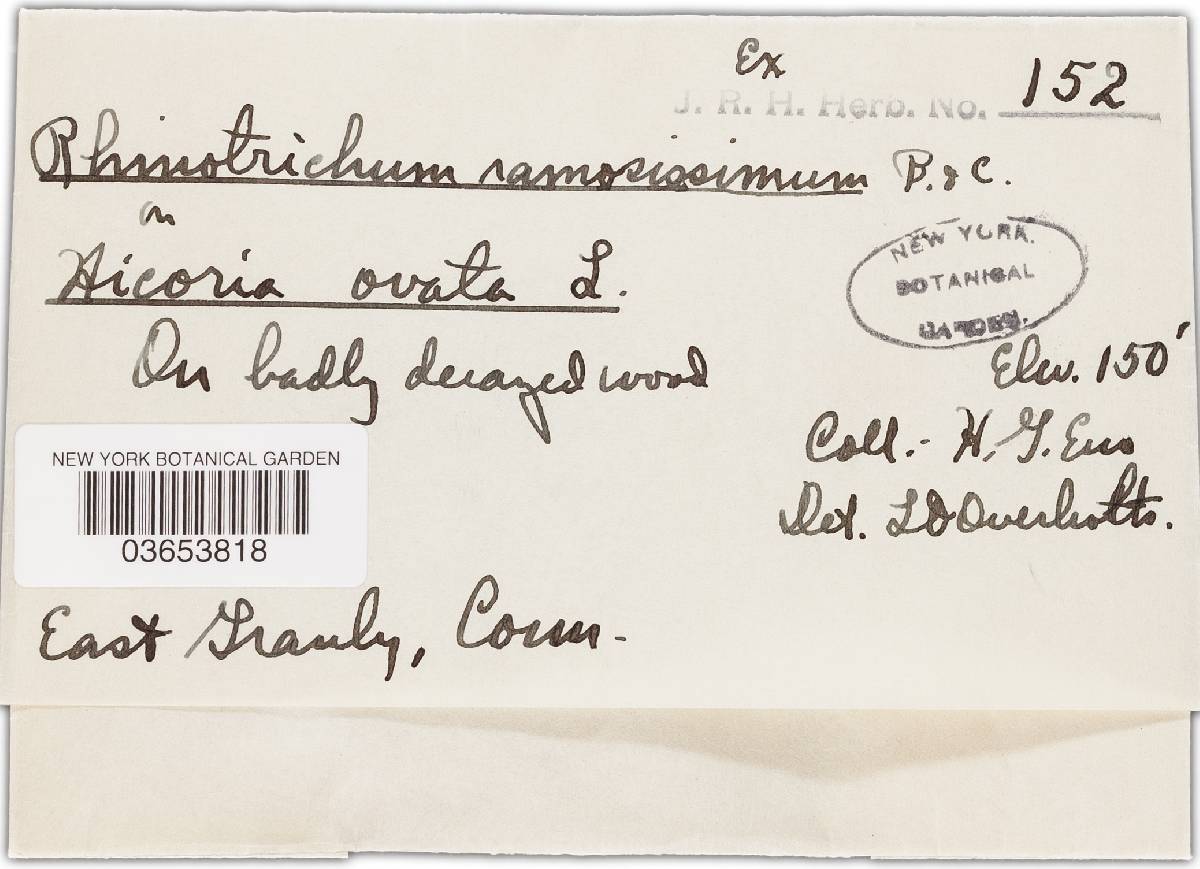 Ex
J. R. H. Herb. No. 152
Rhinotrichum ramosissimum B. & C.
on
Hicoria ovata L.
NEW YORK
BOTANICAL
GARDEN.
On badly decayed wood
Elev. 150'
Coll.- H. G. Eno
Det. L O Overholts.
NEW YORK BOTANICAL GARDEN
03653818
East Granby, Conn.